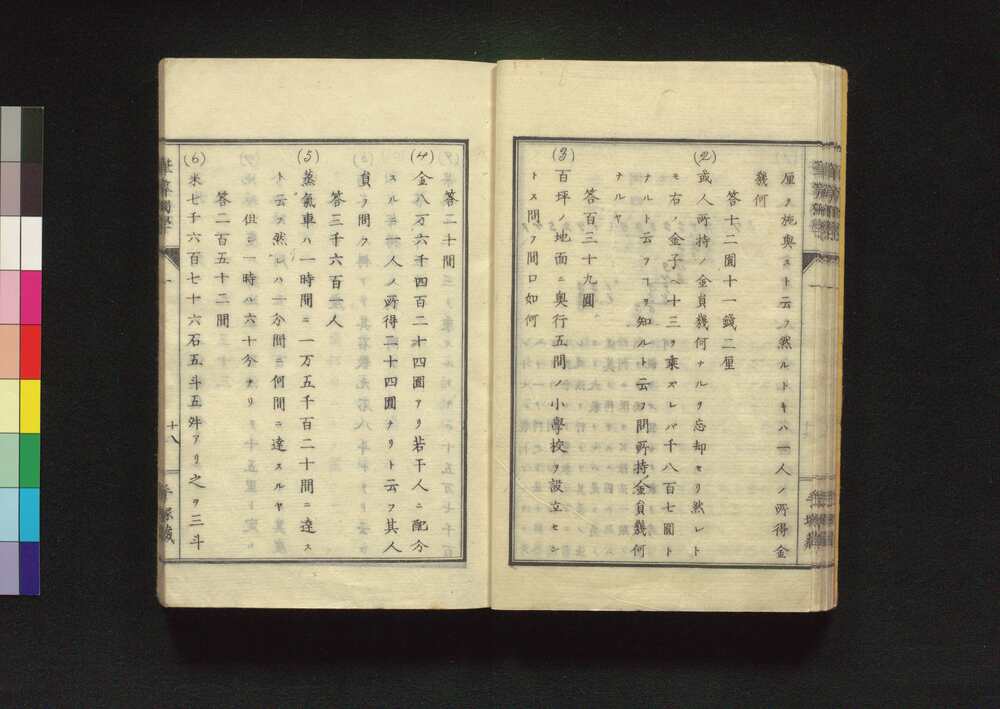 厘ヲ施與スト云フ然ルトキハ一人ノ所得金
幾何
答十二圓十一錢二厘
(2) 或人所持ノ金員幾何ナルヲ忘却セリ然レト
モ右ノ金子ヘ十三ヲ乘スレバ千八百七圓ト
ナルト云フコヲ知ルト云フ問所持金員幾何
ナルヤ
答百三十九圓
(3) 百坪ノ地面ニ奧行五間ノ小學校ヲ設立セン
トス問フ間口如何
答二十間
(4) 金八万六千四百二十四圓アリ若干人ニ配分
スルニ每人ノ所得二十四圓ナリト云フ其人
員ヲ問フ
答三千六百人
(5) 蒸氣車ハ一時間ニ一万五千百二十間ニ達ス
ト云フ然レハ一分間ニ何間ニ達スルヤ
但シ一時ハ六十分ナリ
答二百五十二間
(6) 米七千六百七十六石五斗五舛アリ之ヲ三斗
十八